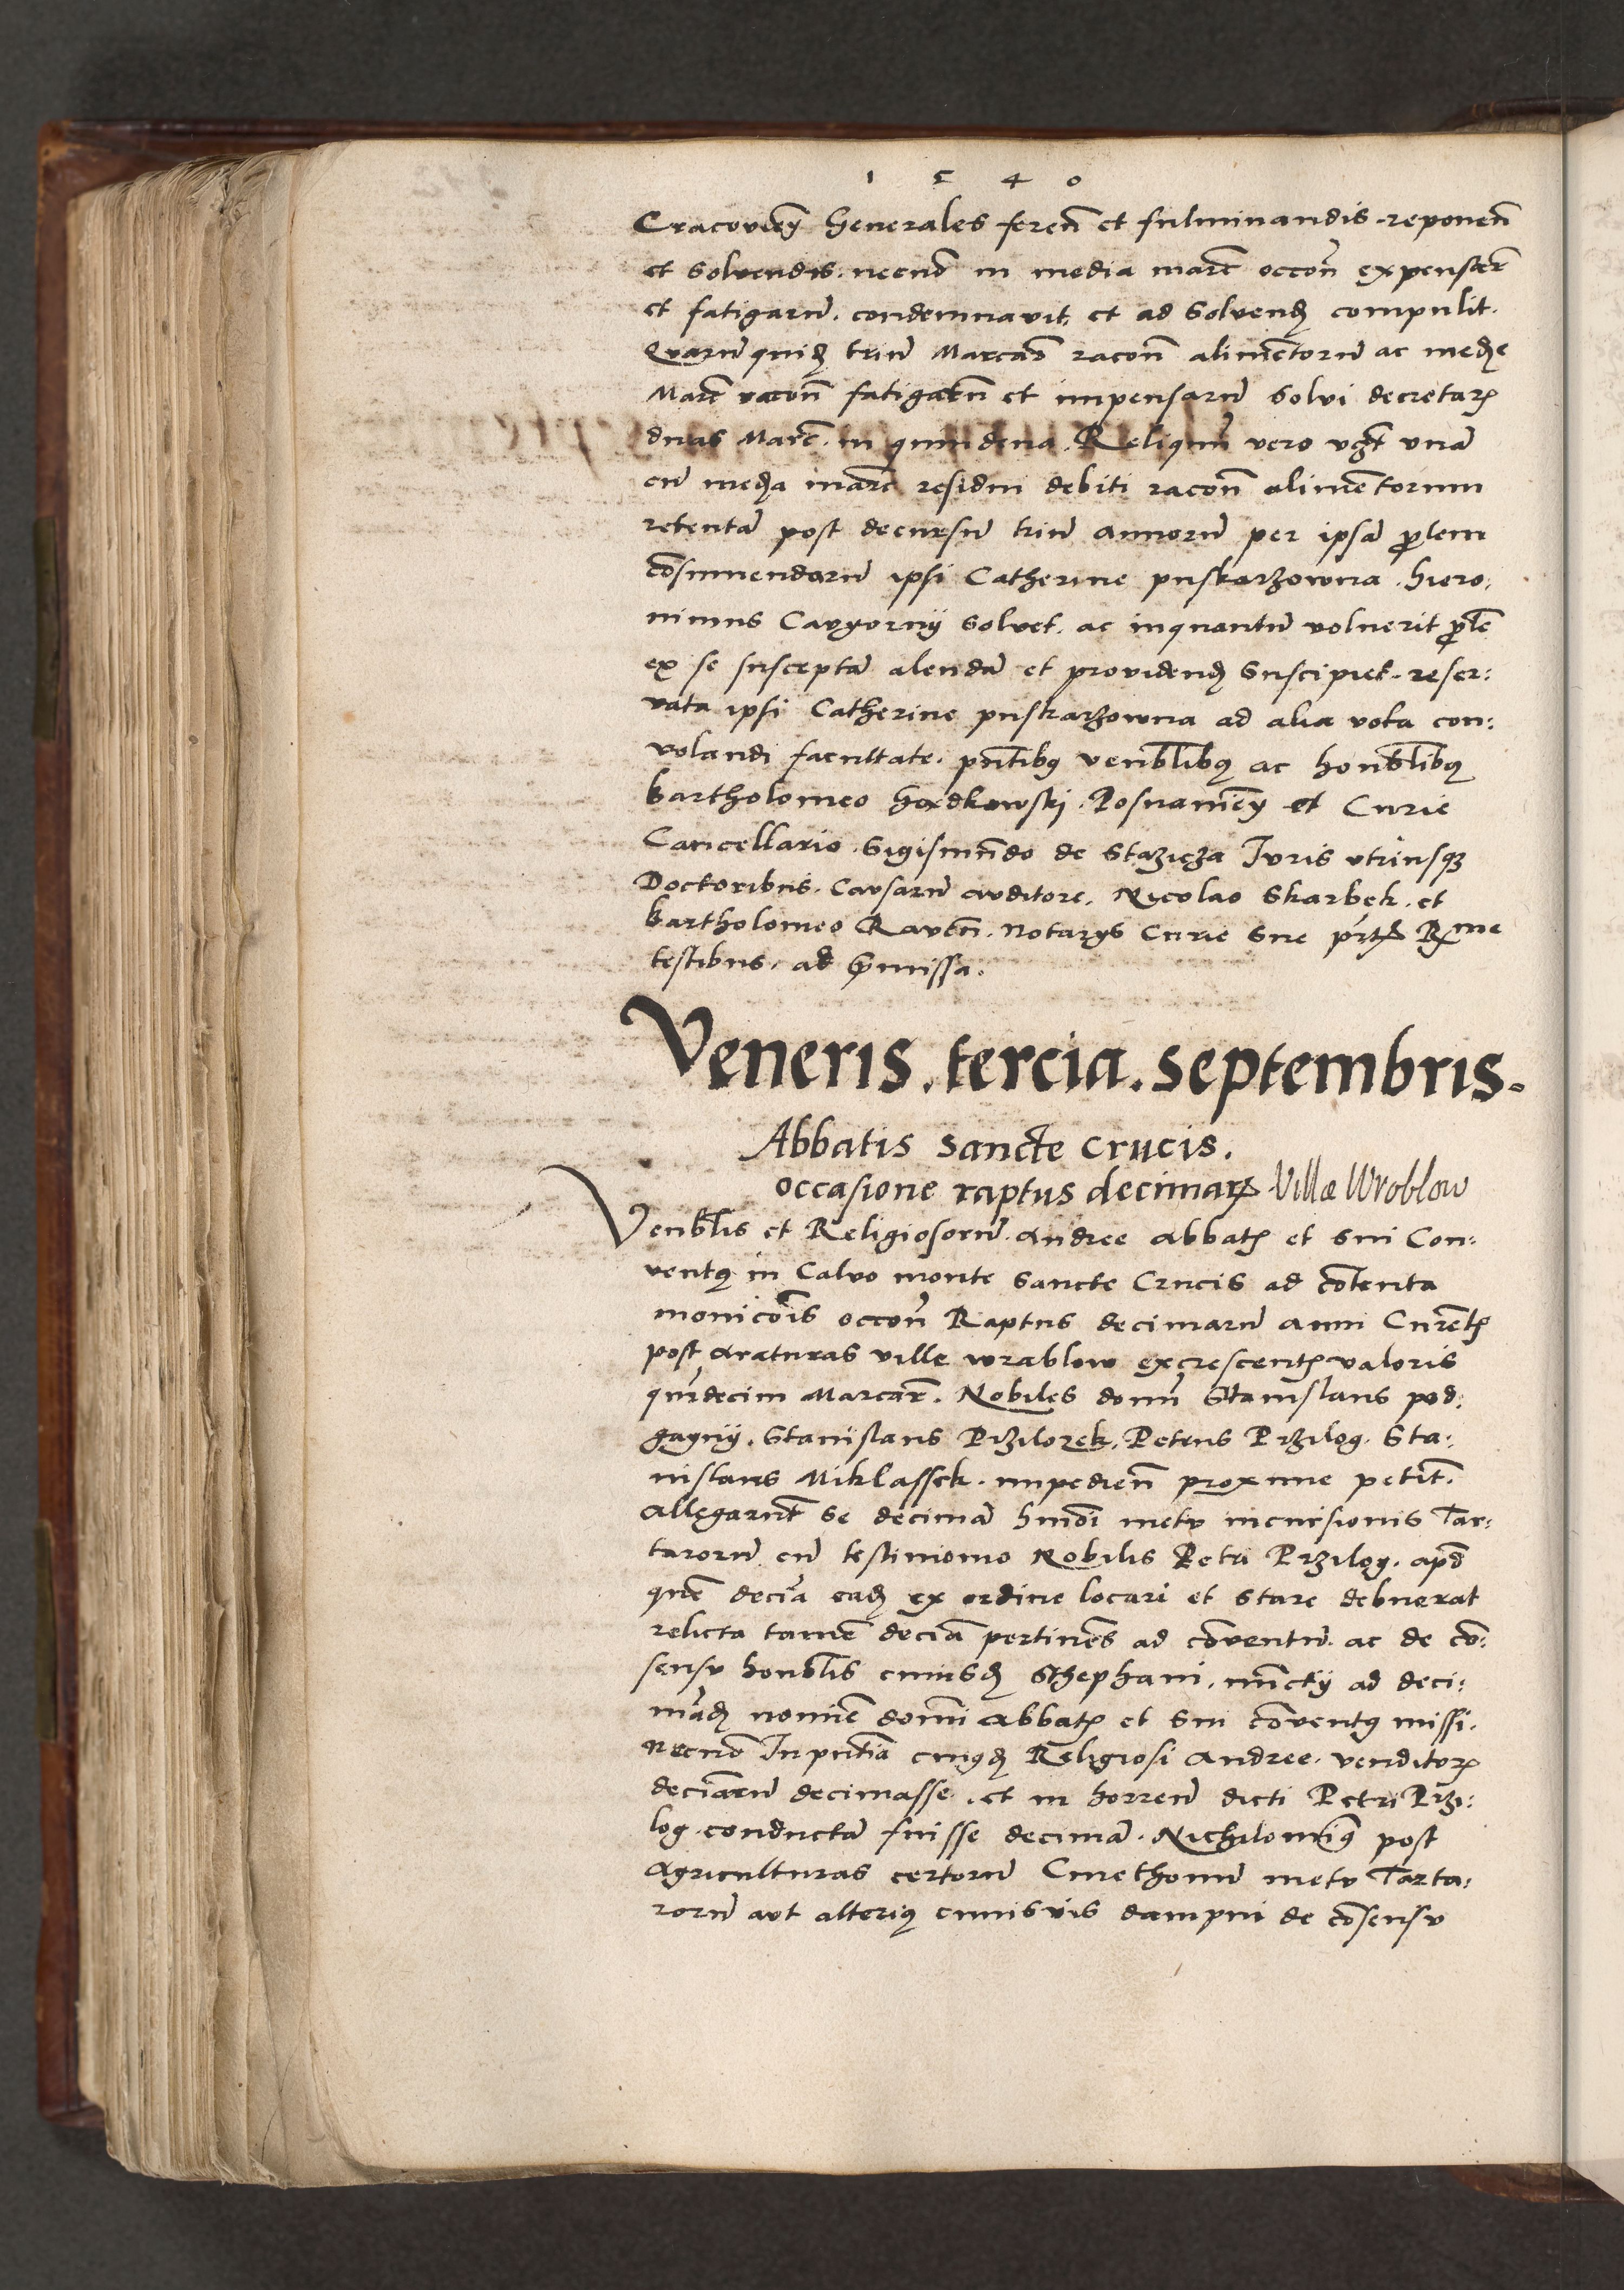 1 5 4 0
Cracovieñ Generales fereñ et fulminandis reponeñ
et solvendis. necnō in media marē occoñ expensar̄
et fatigarū. condemnavit. et ad solvenđ compulit.
Quarū quiđ triū Marcarū racoñ alimētorū ac medie
Marē racoñ fatigatarū et impensarū solvi decretaꝝ
duas Marē. in quindena. Reliquū vero vꝫt vnā
cū media marē residui debiti racoñ alimētorum
retentā post decursū triū annorū per ipsā ꝓlem
cōsumendarū ipsi Catherine puskarzowna. hiero,
nimus Cavgorny solvet. ac inquantū voluerit ꝓlē
ex se susceptā alendā et providenđ suscipiet. reser:
vata ipsi Catherine puskarzowna ad alia vota con:
volandi facultate. pñtibꝰ venblibꝰ ac honblibꝰ
Bartholomeo Gądkowski. Posnanieñ et Curie
Cancellario. Sigismūdo de Stązicza Juris vtriusqꝫ
Doctoribus. Causarū auditore. Nicolao Skarbek. et
Bartholomeo Raveñ. Notarys Curie sue prtꝭ Rme
testibus. ad ꝓmissa.
Veneris. tercia. septembris.
Abbatis sancte crucis.
occasione raptus decimaꝝ Villæ Wroblow
Venblis et Religiosorū. Andree abbatꝭ et sui Con:
ventꝰ in Calvo monte sancte Crucis ad cōtenta
monicōis occoñ Raptus decimarū anni Curētꝭ
post araturas ville wrablow excrescentꝭ valoris
quīdecim Marcar̄. Nobiles domī Stanislaus pod:
gayny. Stanislaus Przilozek. Petrus Przilog. Sta:
nislaus Miklassek. impedieñ proxime petit̄.
allegarūt se decimā hmōi metu incursionis Tar:
tarorū cū testimonio Nobilis Petri Przilog. apđ
quē decīa eađ ex ordine locari et stare debuerat
relicta tamē deciā pertinēs ad cōventū. ac de cō:
sensu honblis cuiusđ Sthephani. nūcty ad deci:
māđ nomīe domī abbatꝭ et sui cōventꝰ missi.
Necnō In pñtiā cuiꝰđ Religiosi Andree. venditoꝝ
deciārū decimasse. et in horreū dicti Petri Przi:
log. conductā fuisse decimā. Nichilomīꝰ post
agriculturas certorū Cmethonū metu Tarta:
rorū aut alteriꝰ cuiusvis dampni de cōsensu